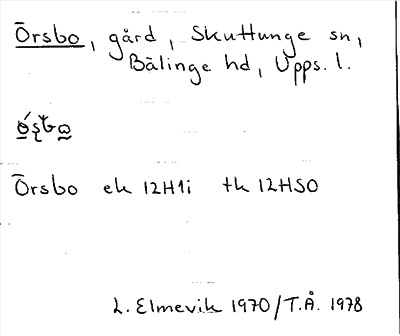 Örsbo, gård, Skuttunge sn,
Bälinge hd, Upps. l.
Örsbo ek 12H1i tk 12HSO
L. Elmevik 1970/T.Å. 1978